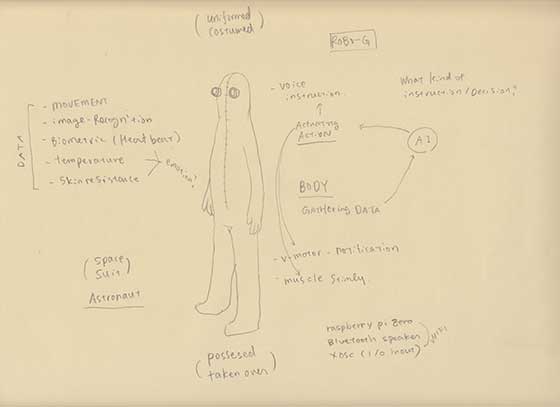 (uniformed
costumed)
ROBO-G
DATA
- MOVEMENT
- image-Recognition
- Biometric (Heart beat)
- temperature
- skin resistence
emotion?
- voice
instruction.
What kind of
instruction/Decision?
Actuating
ACTION
AI
BODY
Gathering DATA
- v-motor - notification
- muscle
(space
suit)
Astronaut
(possesed
taken over)
raspberry pi zero
Bluetooth speaker
XOSC (I/O inout)
WIFI